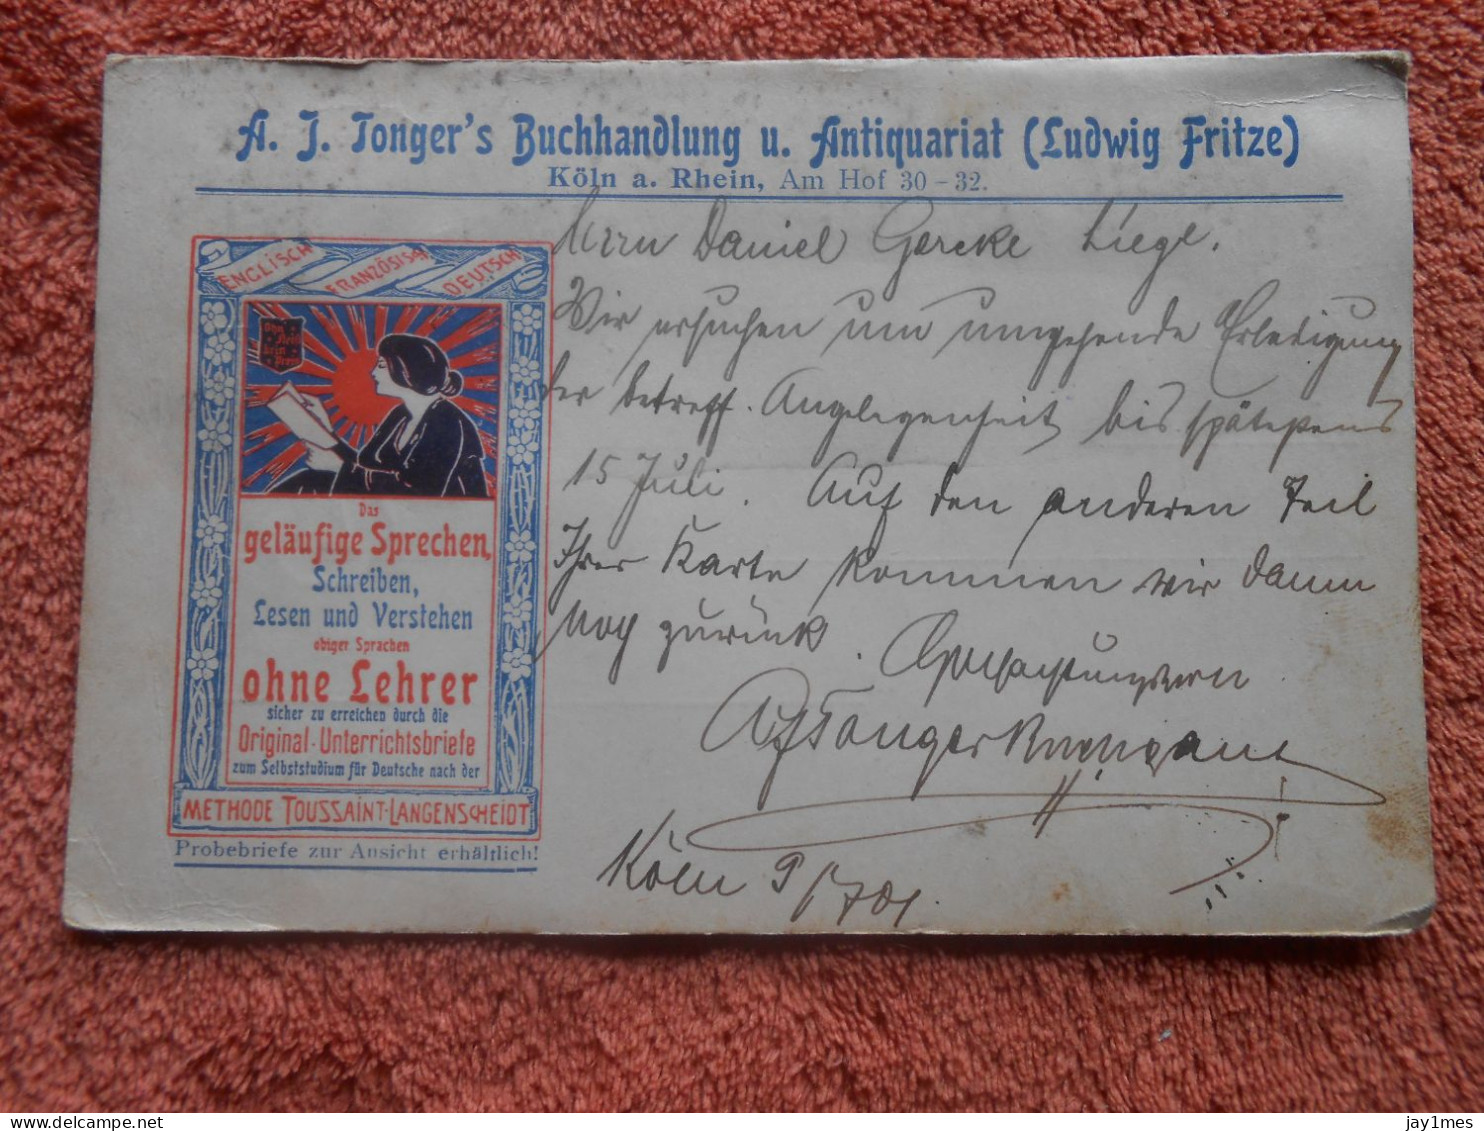 A. J. Tonger's Buchhandlung u. Antiquariat (Ludwig Fritze)
Köln a. Rhein, Am Hof 30-32.
ENGLISCH FRANZÖSISCH DEUTSCH
Ohn' Fleiß kein Preis
Das
geläufige Sprechen,
Schreiben,
Lesen und Verstehen
obiger Sprachen
ohne Lehrer
sicher zu erreichen durch die
Original-Unterrichtsbriefe
zum Selbststudium für Deutsche nach der
METHODE TOUSSAINT-LANGENSCHEIDT
Probebriefe zur Ansicht erhältlich!
Herrn Daniel Gercke Liege.
Wir ersuchen um umgehende Erledigung
der betreff. Angelegenheit bis spätestens
15 Juli. Auf den anderen Teil
Ihrer Karte kommen wir dann
noch zurück. Hochachtungsvoll
Tonger
Köln 9/7 01.
jay1mes
www.delcampe.net